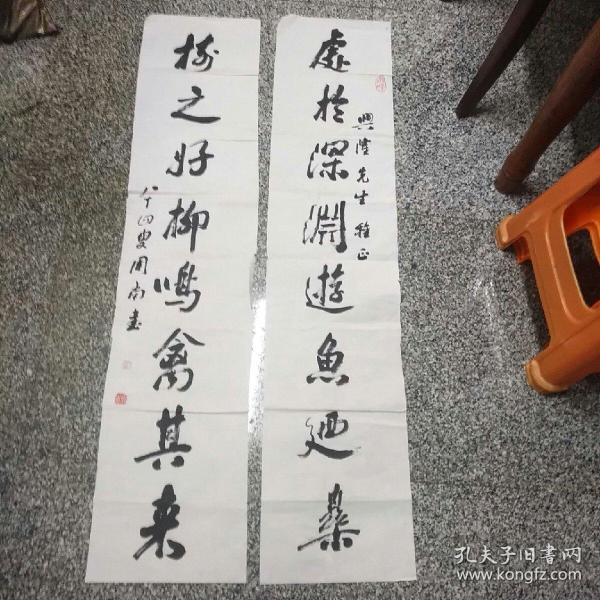 處於深淵遊魚廼樂
興隆先生 雅正
樹之好柳鳴禽其来
八十四叟周南書
孔夫子旧書网
www.kongfz.com